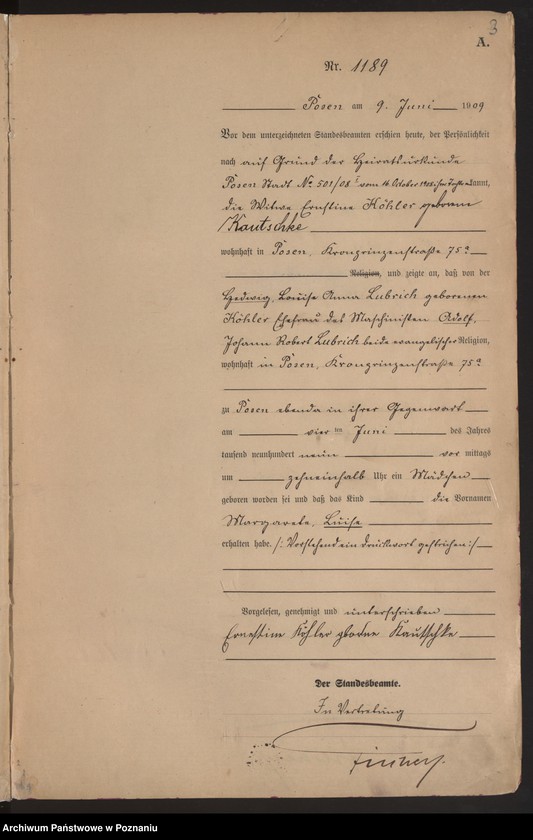 3
A.
Nr. 1189
Posen am 9. Juni 1909
Vor dem unterzeichneten Standesbeamten erschien heute, der Persönlichkeit
nach auf Grund der Heiratsurkunde
Posen Stadt No 501/08 vom 16. October 1908 ihrer Tochter kannt,
die Witwe Ernstine Köhler geborene
Kautschke
wohnhaft in Posen, Kronprinzenstraße 75a
Religion, und zeigte an, daß von der
Hedwig, Louise Anna Lubrich geborenen
Köhler Ehefrau des Maschinisten Adolf,
Johann Robert Lubrich beide evangelischer Religion,
wohnhaft in Posen, Kronprinzenstraße 75a
zu Posen ebenda in ihrer Gegenwart
am vier ten Juni des Jahres
tausend neunhundert neun vor mittags
um zehneinhalb Uhr ein Mädchen
geboren worden sei und daß das Kind die Vornamen
Margarete, Luise
erhalten habe. /: Vorstehend ein Druckwort gestrichen :/
Vorgelesen, genehmigt und unterschrieben
Ernestine Köhler geborne Kautschke
Der Standesbeamte.
In Vertretung
Archiwum Państwowe w Poznaniu